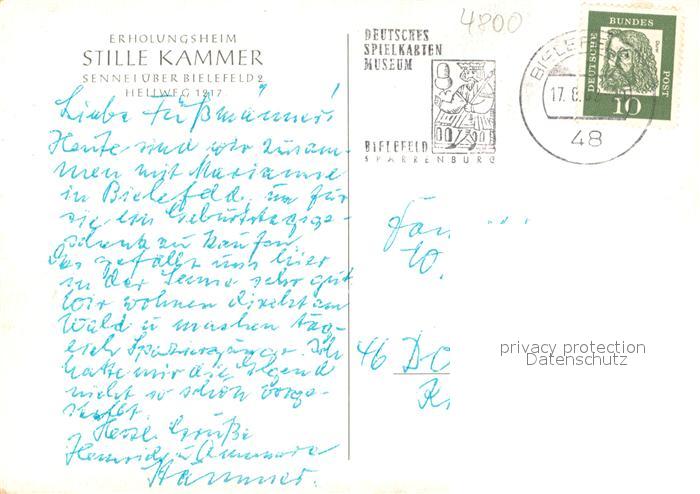 ERHOLUNGSHEIM
STILLE KAMMER
SENNE I ÜBER BIELEFELD 2
HELLWEG 1217
Liebe Fußmänner!
Heute sind wir zusam-
men mit Marianne
in Bielefeld, um für
sie ein Geburtstagsge-
schenk zu kaufen.
Es gefällt uns hier
in der Senne sehr gut
Wir wohnen direkt am
Wald u machen täg-
lich Spaziergänge. Ich
hatte mir die Gegend
nicht so schön vorge-
stellt.
Herzl. Grüße
Heinrich u Annemarie
Hammer.
4800
DEUTSCHES
SPIELKARTEN
MUSEUM
BIELEFELD
SPARRENBURG
BIELEFELD
17. 8. 62
48
DEUTSCHE
BUNDES
POST
10
Fam
W.
46 DO
K
privacy protection
Datenschutz